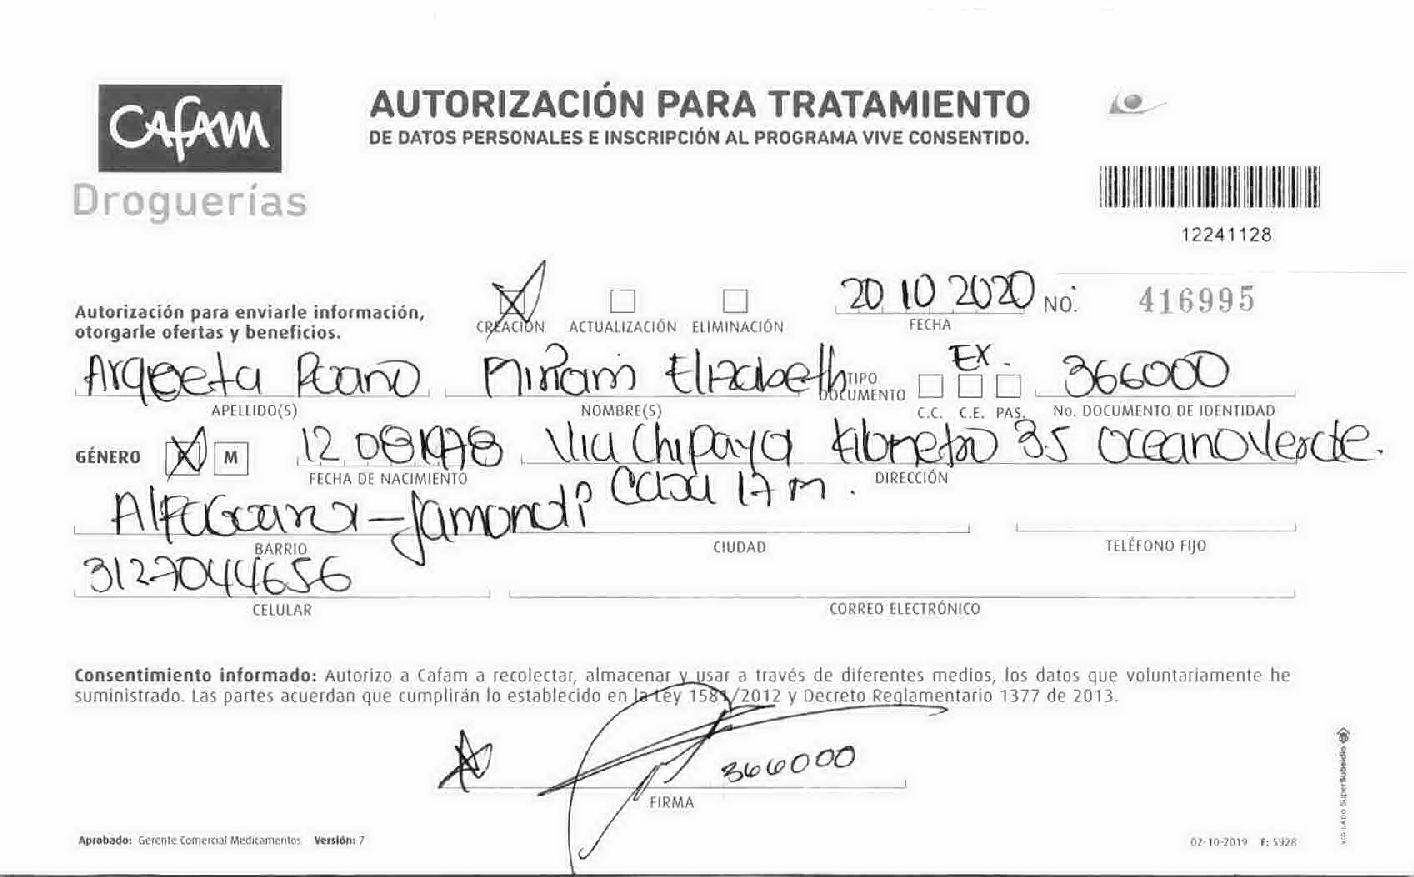 CAFAM
Droguerías
AUTORIZACIÓN PARA TRATAMIENTO
DE DATOS PERSONALES E INSCRIPCIÓN AL PROGRAMA VIVE CONSENTIDO.
12241128
Autorización para enviarle información,
otorgarle ofertas y beneficios.
CREACIÓN ACTUALIZACIÓN ELIMINACIÓN
20 10 2020
FECHA
NO. 416995
Miriam Elizabeth
APELLIDO(S) NOMBRE(S)
TIPO
DOCUMENTO
EX.
C.C. C.E. PAS.
366000
No. DOCUMENTO DE IDENTIDAD
GÉNERO M
12 08 1978 Via Chipaya Kilometro 3.5 Oceano Verde.
FECHA DE NACIMIENTO DIRECCIÓN
Casa 17 m.
Jamondi
BARRIO CIUDAD TELÉFONO FIJO
3127044656
CELULAR CORREO ELECTRÓNICO
Consentimiento informado: Autorizo a Cafam a recolectar, almacenar y usar a través de diferentes medios, los datos que voluntariamente he
suministrado. Las partes acuerdan que cumplirán lo establecido en la Ley 1581/2012 y Decreto Reglamentario 1377 de 2013.
366000
FIRMA
Aprobado: Gerente Comercial Medicamentos Versión: 7
02-10-2019 F: 5928
VIGILADO SuperSubsidio